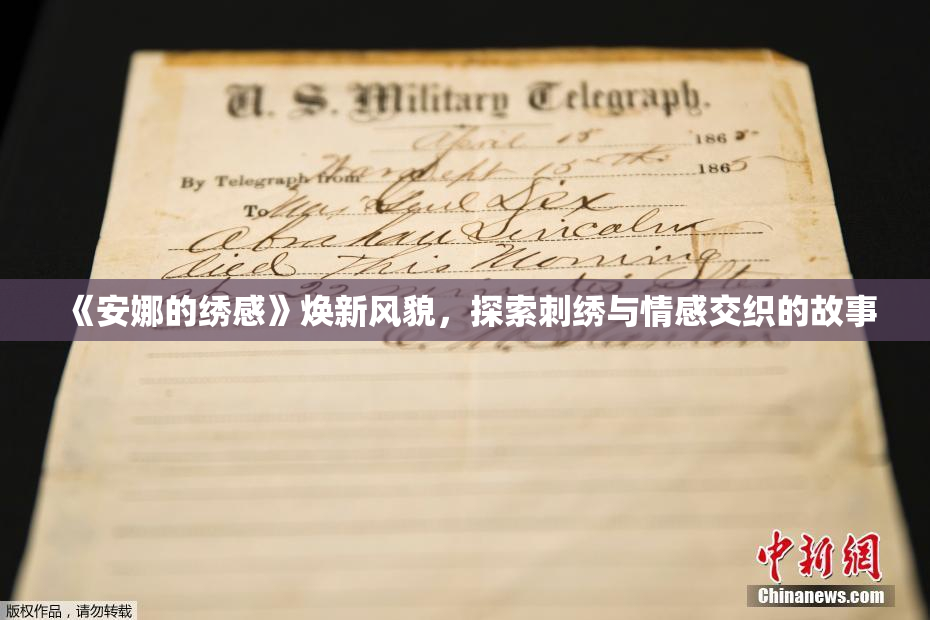 U. S. Military Telegraph.
April 15 1865
By Telegraph from War Dept 15th 1865
To Maj Genl Dix
Abraham Lincoln
died This Morning
at 22 minutes after
《安娜的绣感》焕新风貌，探索刺绣与情感交织的故事
E. M. Stanton
中新网
Chinanews.com
版权作品，请勿转载